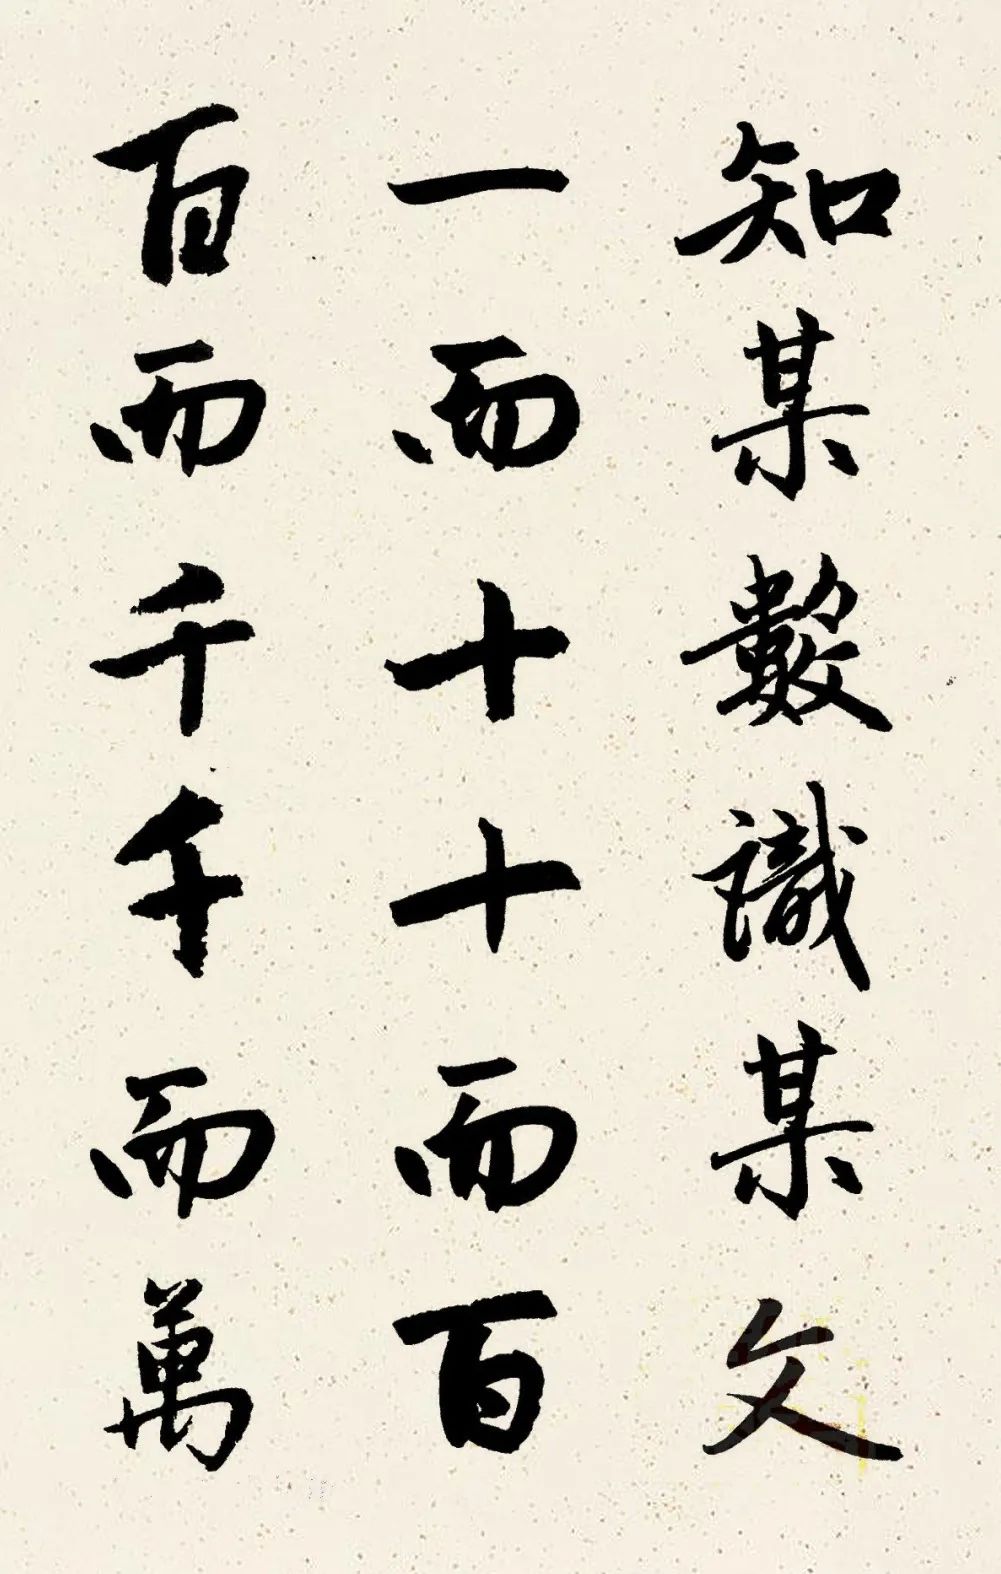 知某數識某文
一而十十而百
百而千千而萬